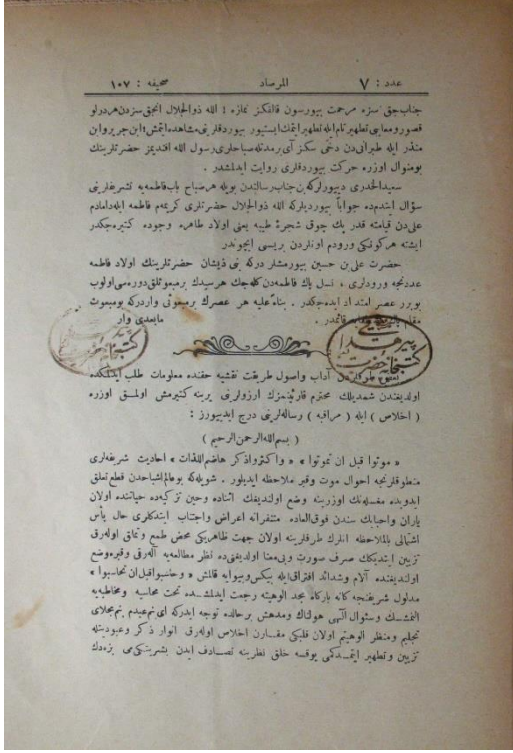 عدد : ٧ المرصاد صحيفه : ١٠٧
جناب حق سزه مرحمت بيورسون قالقكز نمازه ! الله ذوالجلال انجق سزدن هر درلو
قصور ومعايبى تطهير تام ايله تطهير ايتمك ايستيور بيوردقلرينى مشاهده ايتمش ؛ ابن جرير وابن
منذر ايله طبرانى دن دخى سكز آى بر مدتله صباحلرى رسول الله افنديمز حضرتلرينك
بومنوال اوزره حركت بيوردقلرى روايت ايدلمشدر .
سعيد الخدرى دييورلركه بن جناب رسالتدن بويله هر صباح باب فاطمه يه تشريفلرينى
سؤال ايتدم ده جواباً بيورديلركه الله ذوالجلال حضرتلرى كريمه م فاطمه ايله دامادم
على دن قيامته قدر پك چوق شجرهٔ طيبه يعنى اولاد طاهره وجوده كتيره جكدر
ايشته هركونكى ورودم اونلردن بريسى ايچوندر
حضرت على بن حسين بيورمشلر دركه نبى ذيشان حضرتلرينك اولاد فاطمه
عددنجه ورودلرى ، نسل پاك فاطمه دن كله جك هر سيدك برمبعوثلق دوره سى اولوب
بو برر عصر امتداد ايده جكدر . بناءً عليه هر عصرك برمبعوثى واردركه بومبعوث
قائمدر . مابعدى وار
آداب واصول طريقت نقشيه حقنده معلومات طلب ايدلمكده
اولديغندن شمديلك محترم قارئلرمزك آرزولرينى يرينه كتيرمش اولمق اوزره
( اخلاص ) ايله ( مراقبه ) رساله لرينى درج ايدييورز :
( بسم الله الرحمن الرحيم )
« موتوا قبل ان تموتوا » « واكثروا ذكر هاضم اللذات » احاديث شريفه لرى
منطوقلرنجه احوال موت وقبر ملاحظه ايديلور . شويله كه بوعالم اشباحدن قطع تعلق
ايدوبده مغسله نك اوزرينه وضع اولنديغك اثناده وحين تزكيه ده حياتنده اولان
ياران واحبابك سندن فوق العاده متنفرانه اعراض واجتناب ايتدكلرى حال يأس
اشتمالى بالملاحظه انلرك طرفلرينه اولان جهت ظاهريكى محض طمع وتملق اوله رق
تزيين ايتديكك صرف صورت وبى معنا اولديغنى ده نظر مطالعه يه آله رق وقبره وضع
اولنديغنده آلام وشدائد افتراق ايله بيكس وبينوايه قالمش « وحاسبوا قبل ان تحاسبوا »
مدلول شريفنجه كانه باركاه مجد الوهيته رجعت ايدلمشده تحت محاسبه ومخاطبه يه
النمشسك وسؤال الهى هولناك ومدهش برحالده توجه ايدركه اى نم عبدم بنم مجلاى
تجليم ومنظر الوهيتم اولان قلبكى مقارن اخلاص اوله رق انوار ذكر وعبوديتله
تزيين وتطهير ايتمدكمى يوقسه خلق نظرينه تصادف ايدن بشريتكى مى بزه دك